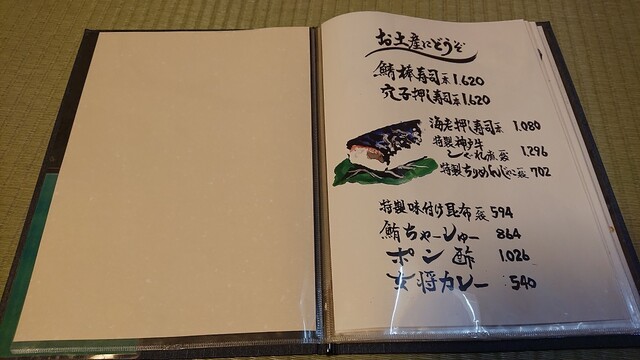 お土産にどうぞ
鯖棒寿司一本 1.620
穴子押し寿司一本 1.620
海老押し寿司一本 1.080
特製神戸牛
しぐれ煮一袋 1.296
特製ちりめんじゃこ一袋 702
特製味付け昆布一袋 594
鮪ちゃーしゅー 864
ポン酢 1.026
女将カレー 540